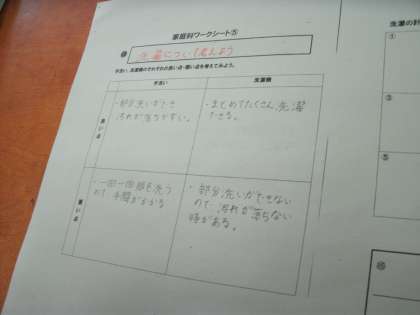 家庭科ワークシート⑤
洗濯について考えよう
手洗い、洗濯機のそれぞれの良い点・悪い点を考えてみよう。
手洗い
洗濯機
良い点
・部分洗いができ
汚れが落ちやすい。
・まとめてたくさん洗濯
できる。
悪い点
・一回一回何も洗う
ので手間がかかる
・部分洗いができない
ので汚れが落ちない
時がある。
洗濯の
①
③
⑤